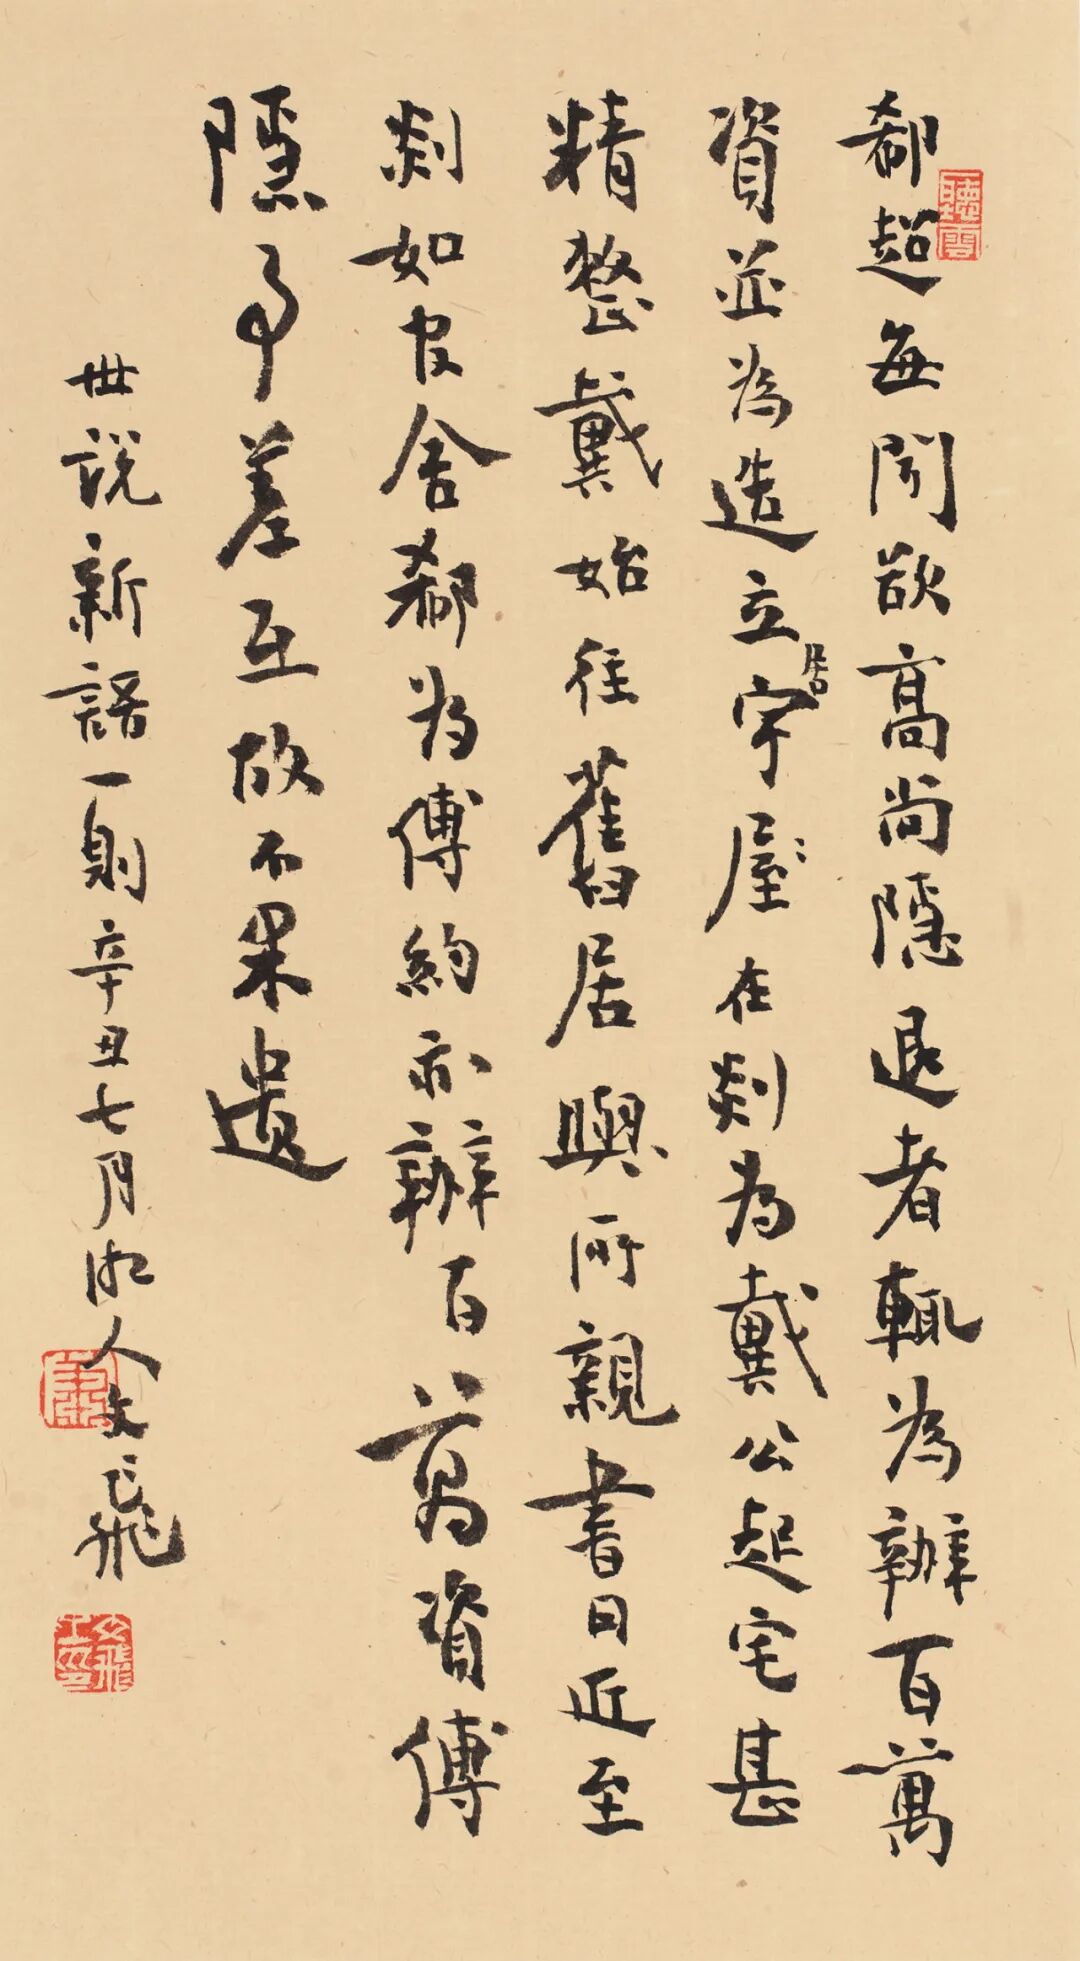 聽雲
郗超每聞欲高尚隱退者輒為辦百萬
資並為造立宇屋在剡為戴公起宅甚
居
精整戴始往舊居與所親書曰近至
剡如官舍郗為傅約亦辦百萬資傅
隱事差互故不果遺
世說新語一則辛丑七月湘人文飛